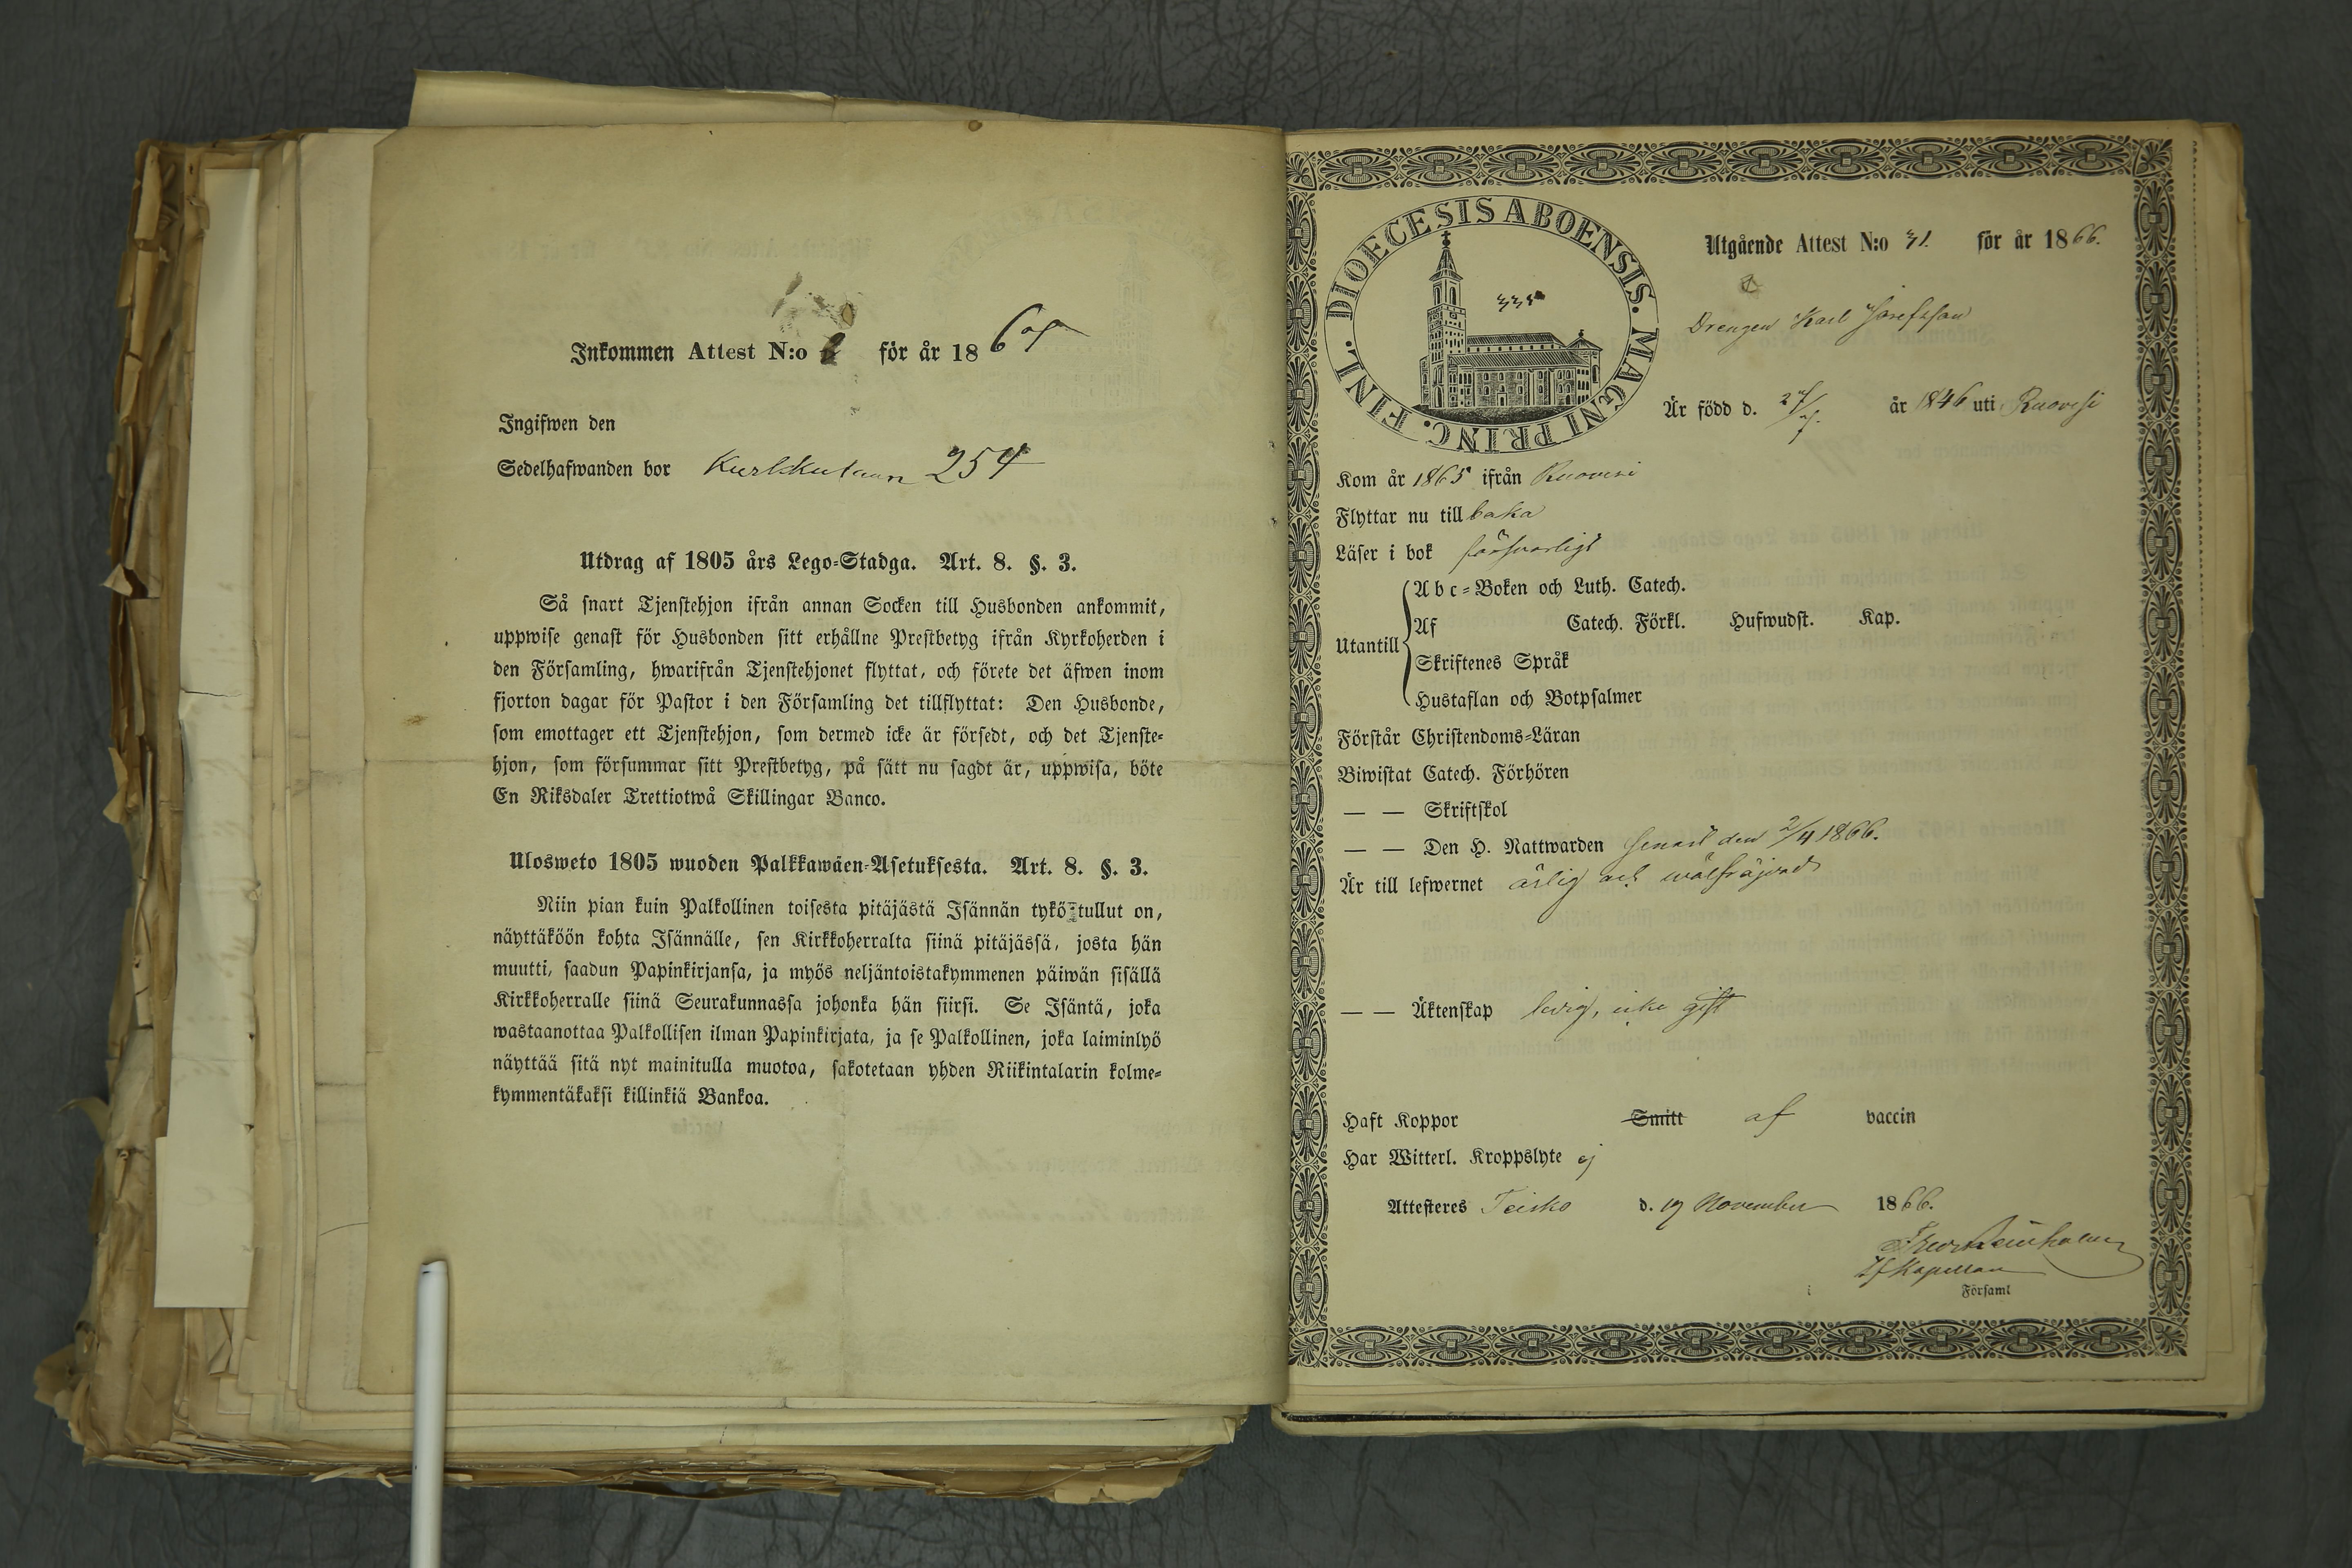 Inkommen Attest N:o för år 18
Ingifwen den
Sedelhafwanden bor 254
Utdrag af 1805 års Lego-Stadga. Art. 8. §. 3.
Så snart Tjenstehjon ifrån annan Socken till Husbonden ankommit,
uppwise genast för Husbonden sitt erhållne Prestbetyg ifrån Kyrkoherden i
den Församling, hwarifrån Tjenstehjonet flyttat, och förete det äfwen inom
fjorton dagar för Pastor i den Församling det tillflyttat: Den Husbonde,
som emottager ett Tjenstehjon, som dermed icke är försedt, och det Tjenste-
hjon, som försummar sitt Prestbetyg, på sätt nu sagdt är, uppwisa, böte
En Riksdaler Trettiotwå Skillingar Banco.
Ulosweto 1805 wuoden Palkkawäen-Asetuksesta. Art. 8. §. 3.
Niin pian kuin Palkollinen toisesta pitäjästä Isännän tykö-tullut on,
näyttäköön kohta Isännälle, sen Kirkkoherralta siinä pitäjässä, josta hän
muutti, saadun Papinkirjansa, ja myös neljäntoistakymmenen päiwän sisällä
Kirkkoherralle siinä Seurakunnassa johonka hän siirsi. Se Isäntä, joka
wastaanottaa Palkollisen ilman Papinkirjata, ja se Palkollinen, joka laiminlyö
näyttää sitä nyt mainitulla muotoa, sakotetaan yhden Riikintalarin kolme-
kymmentäkaksi killinkiä Bankoa.
DIOECESIS ABOENSIS. MAGNI PRINC. FINL.
Utgående Attest N:o 31. för år 1866.
Drengen Karl Josefsson
Är född d. 27/7. år 1846 uti Ruovesi
Kom år 1865 ifrån Ruovesi
Flyttar nu till baka
Läser i bok försvarligt
Utantill
Abc-Boken och Luth. Catech.
Af Catech. Förkl. Hufwudst. Kap.
Skriftenes Språk
Hustaflan och Botpsalmer
Förstår Christendoms-Läran
Biwistat Catech. Förhören
— — Skriftskol
— — Den H. Nattwarden senast den 2/4 1866.
Är till lefwernet ärlig och wälfräjdad
— — Äktenskap ledig, icke gift
Haft Koppor Smitt af vaccin
Har Witterl. Kroppslyte ej
Attesteres Teisko d. 19 November 1866.
Kapellan
i Församl